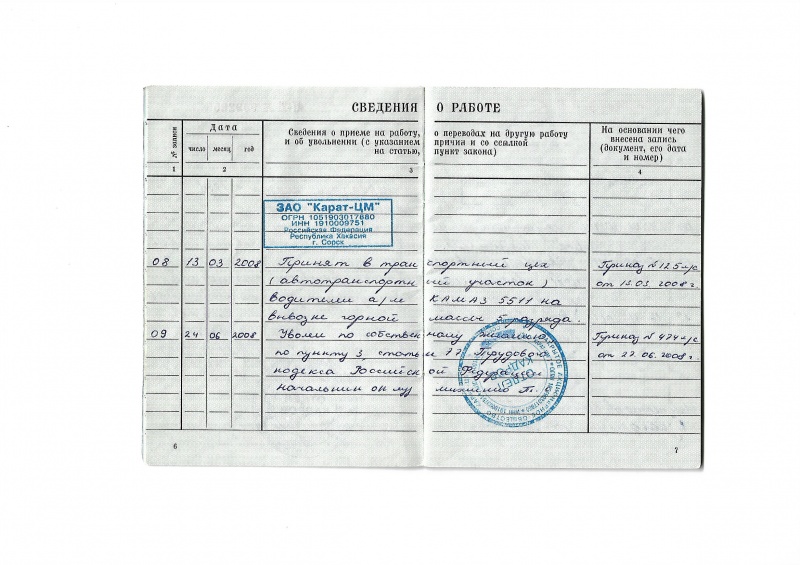 СВЕДЕНИЯ О РАБОТЕ
№ записи
Дата
число месяц год
Сведения о приеме на работу, о переводах на другую работу
и об увольнении (с указанием причин и со ссылкой
на статью, пункт закона)
На основании чего
внесена запись
(документ, его дата
и номер)
1 2 3 4
ЗАО "Карат-ЦМ"
ОГРН 1051903017680
ИНН 1910009751
Российская Федерация
Республика Хакасия
г. Сорск
08 13 03 2008 Принят в транспортный цех Приказ №125л/с
(автотранспортный участок) от 13.03.2008г.
водителем а/м КАМАЗ 5511 на
вывозке горной массы 5 разряда.
09 24 06 2008 Уволен по собственному желанию Приказ №474л/с
по пункту 3, статьи 77 Трудового от 27.06.2008г
кодекса Российской Федерации
начальник
ОТДЕЛ
КАДРОВ
6 7